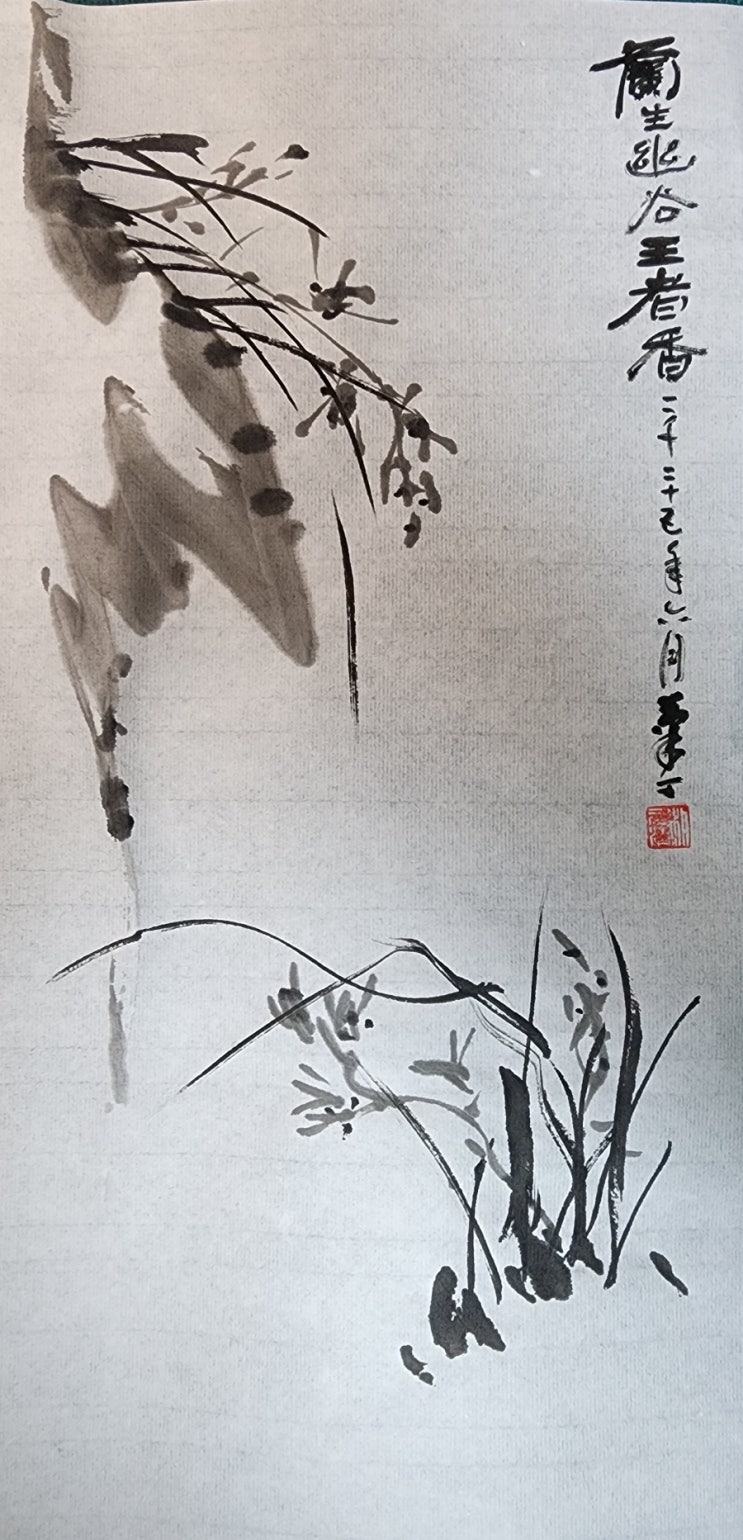 蘭生幽谷王者香二千二十五年六月